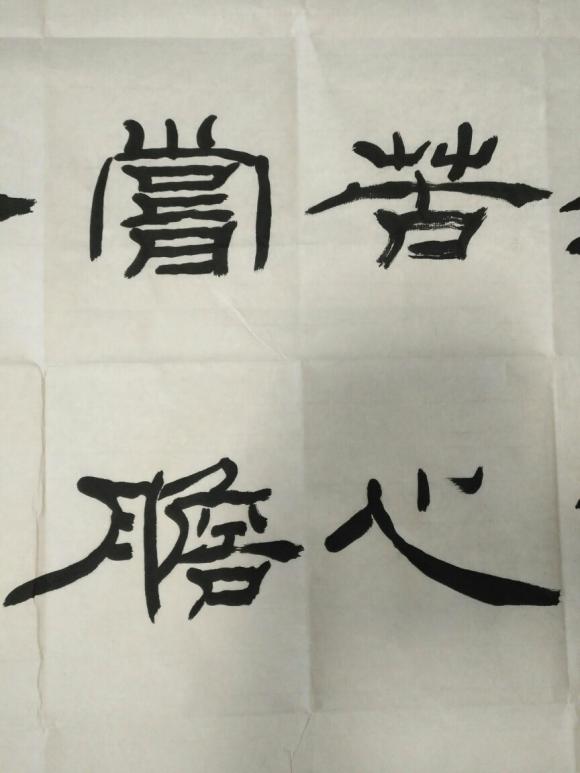 苦心
嘗膽